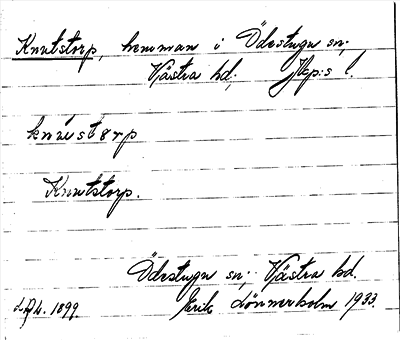 Knutstorp, hemman i Ödestugu sn;
Västra hd; Jkp:s l.
knu̇størp
Knutstorp.
Ödestugu sn; Västra hd.
1899. Erik Lönnerholm 1933.